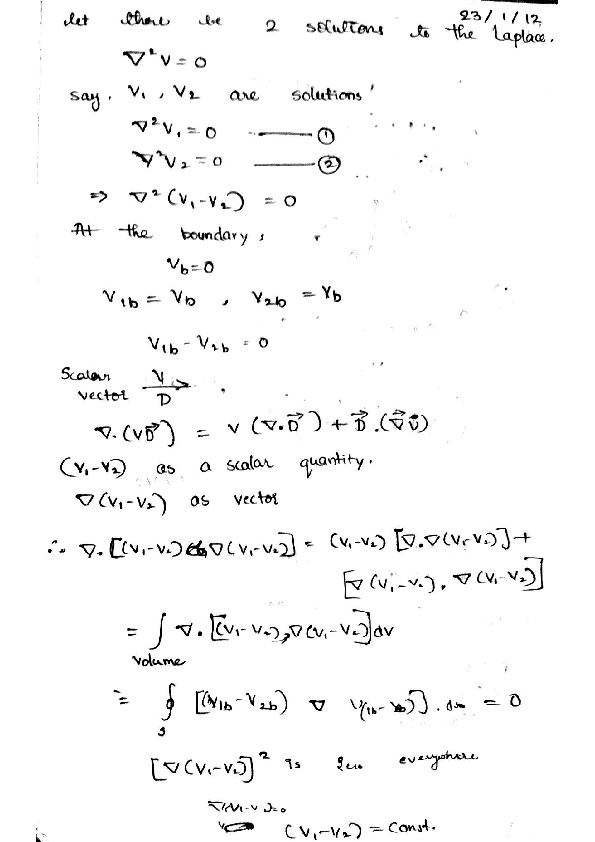 23/1/12
Let there be 2 solutions to the Laplace.
∇²V = 0
say, V₁, V₂ are solutions'
∇²V₁ = 0 ——— ①
∇²V₂ = 0 ——— ②
⇒ ∇²(V₁-V₂) = 0
At the boundary,
V_b = 0
V₁b = V_b , V₂b = V_b
V₁b - V₂b = 0
Scalar V
vector D⃗
∇.(VD⃗) = V(∇.D⃗) + D⃗.(∇⃗V)
(V₁-V₂) as a scalar quantity.
∇(V₁-V₂) as vector
∴ ∇.[(V₁-V₂)∇(V₁-V₂)] = (V₁-V₂)[∇.∇(V₁-V₂)]+
[∇(V₁-V₂).∇(V₁-V₂)]
= ∫ ∇.[(V₁-V₂)∇(V₁-V₂)]dv
volume
= ∮ [(V₁b-V₂b) ∇ (V₁b- )]. = 0
s
[∇(V₁-V₂)]² is zero everywhere
∇(V₁-V₂)=0
(V₁-V₂) = Const.